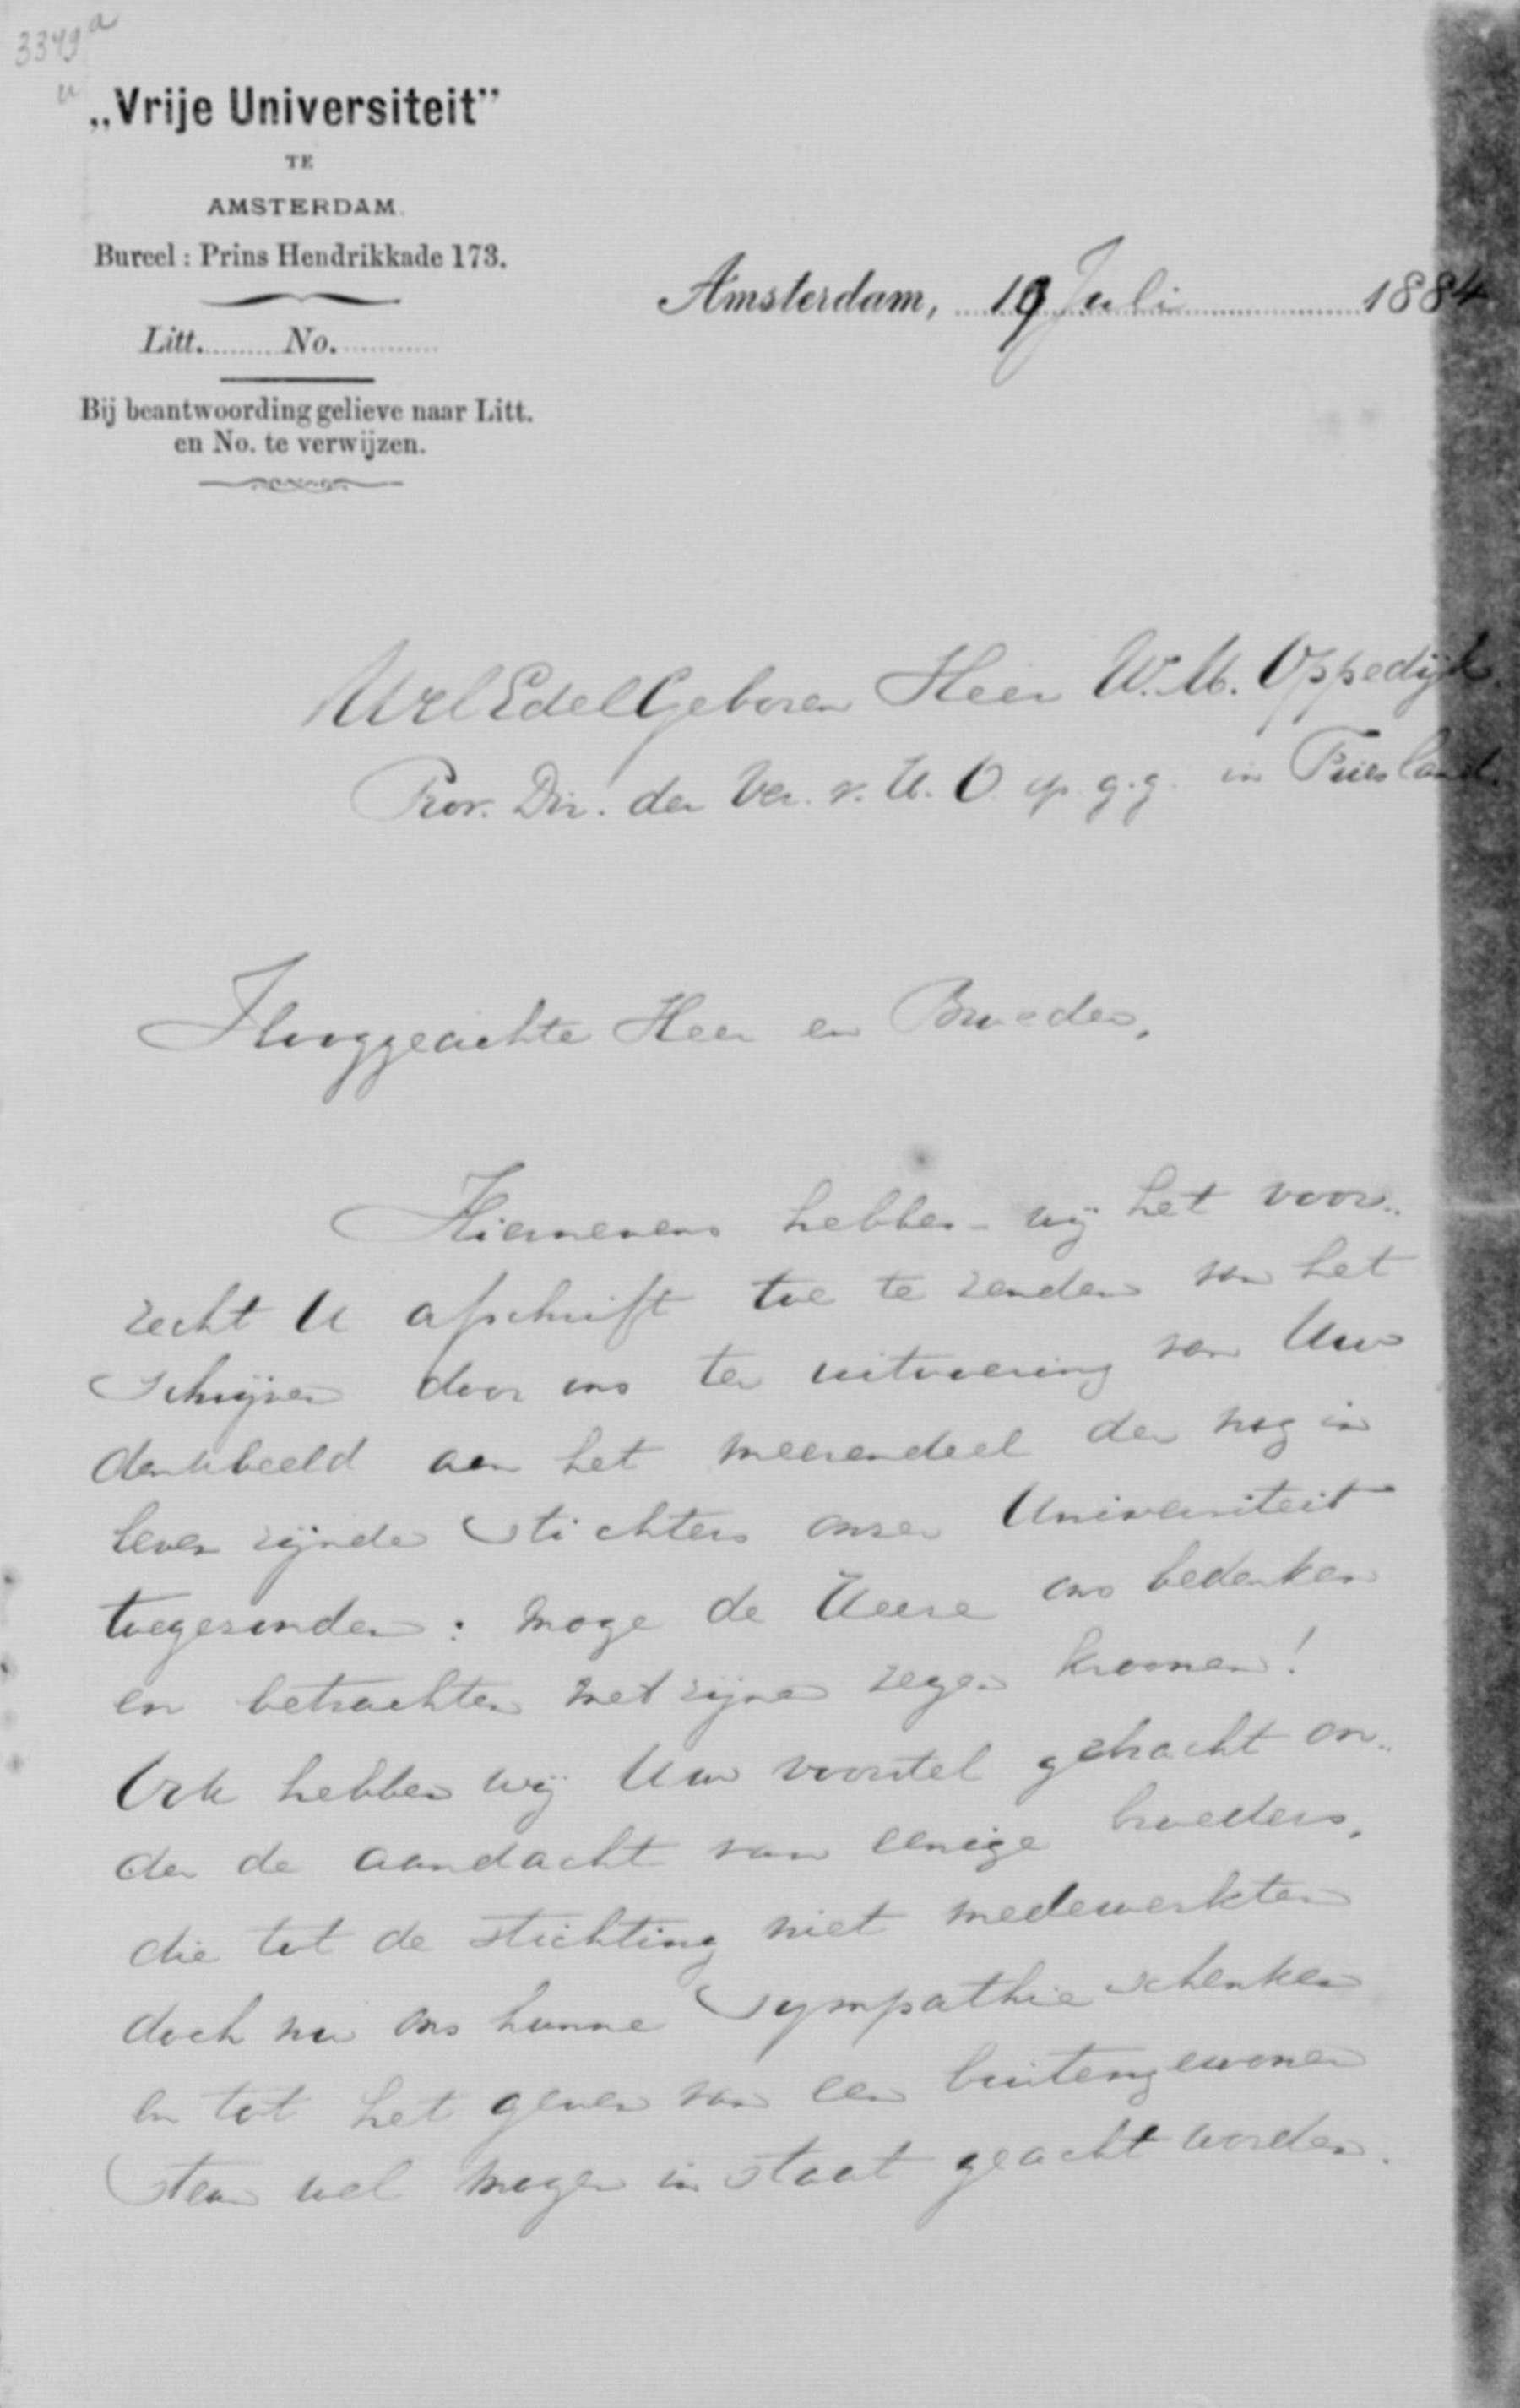 3349a
„Vrije Universiteit”
TE
AMSTERDAM.
Bureel : Prins Hendrikkade 173.
Amsterdam, 19 Juli 1884
Litt. No.
Bij beantwoording gelieve naar Litt.
en No. te verwijzen.
WelEdelGeboren Heer W. M. Oppedijk.
Prov. Dir. der Ver. v. H. O. op g. g. in Friesland.
Hooggeachte Heer en Broeder,
Hiernevens hebben wij het voor-
recht U afschrift toe te zenden van het
schrijven door ons ter uitvoering van Uw
denkbeeld aan het meerendeel der nog in
leven zijnde Stichters onzer Universiteit
toegezonden: moge de Heere ons bedenken
en betrachten met zijnen zegen kroonen!
Ook hebben wij Uw voorstel gebracht on-
der de aandacht van eenige broeders,
die tot de stichting niet medewerkten
doch nu ons hunne Sympathie schenken
en tot het geven van een buitengewonen
Steun wel mogen in staat geacht worden.